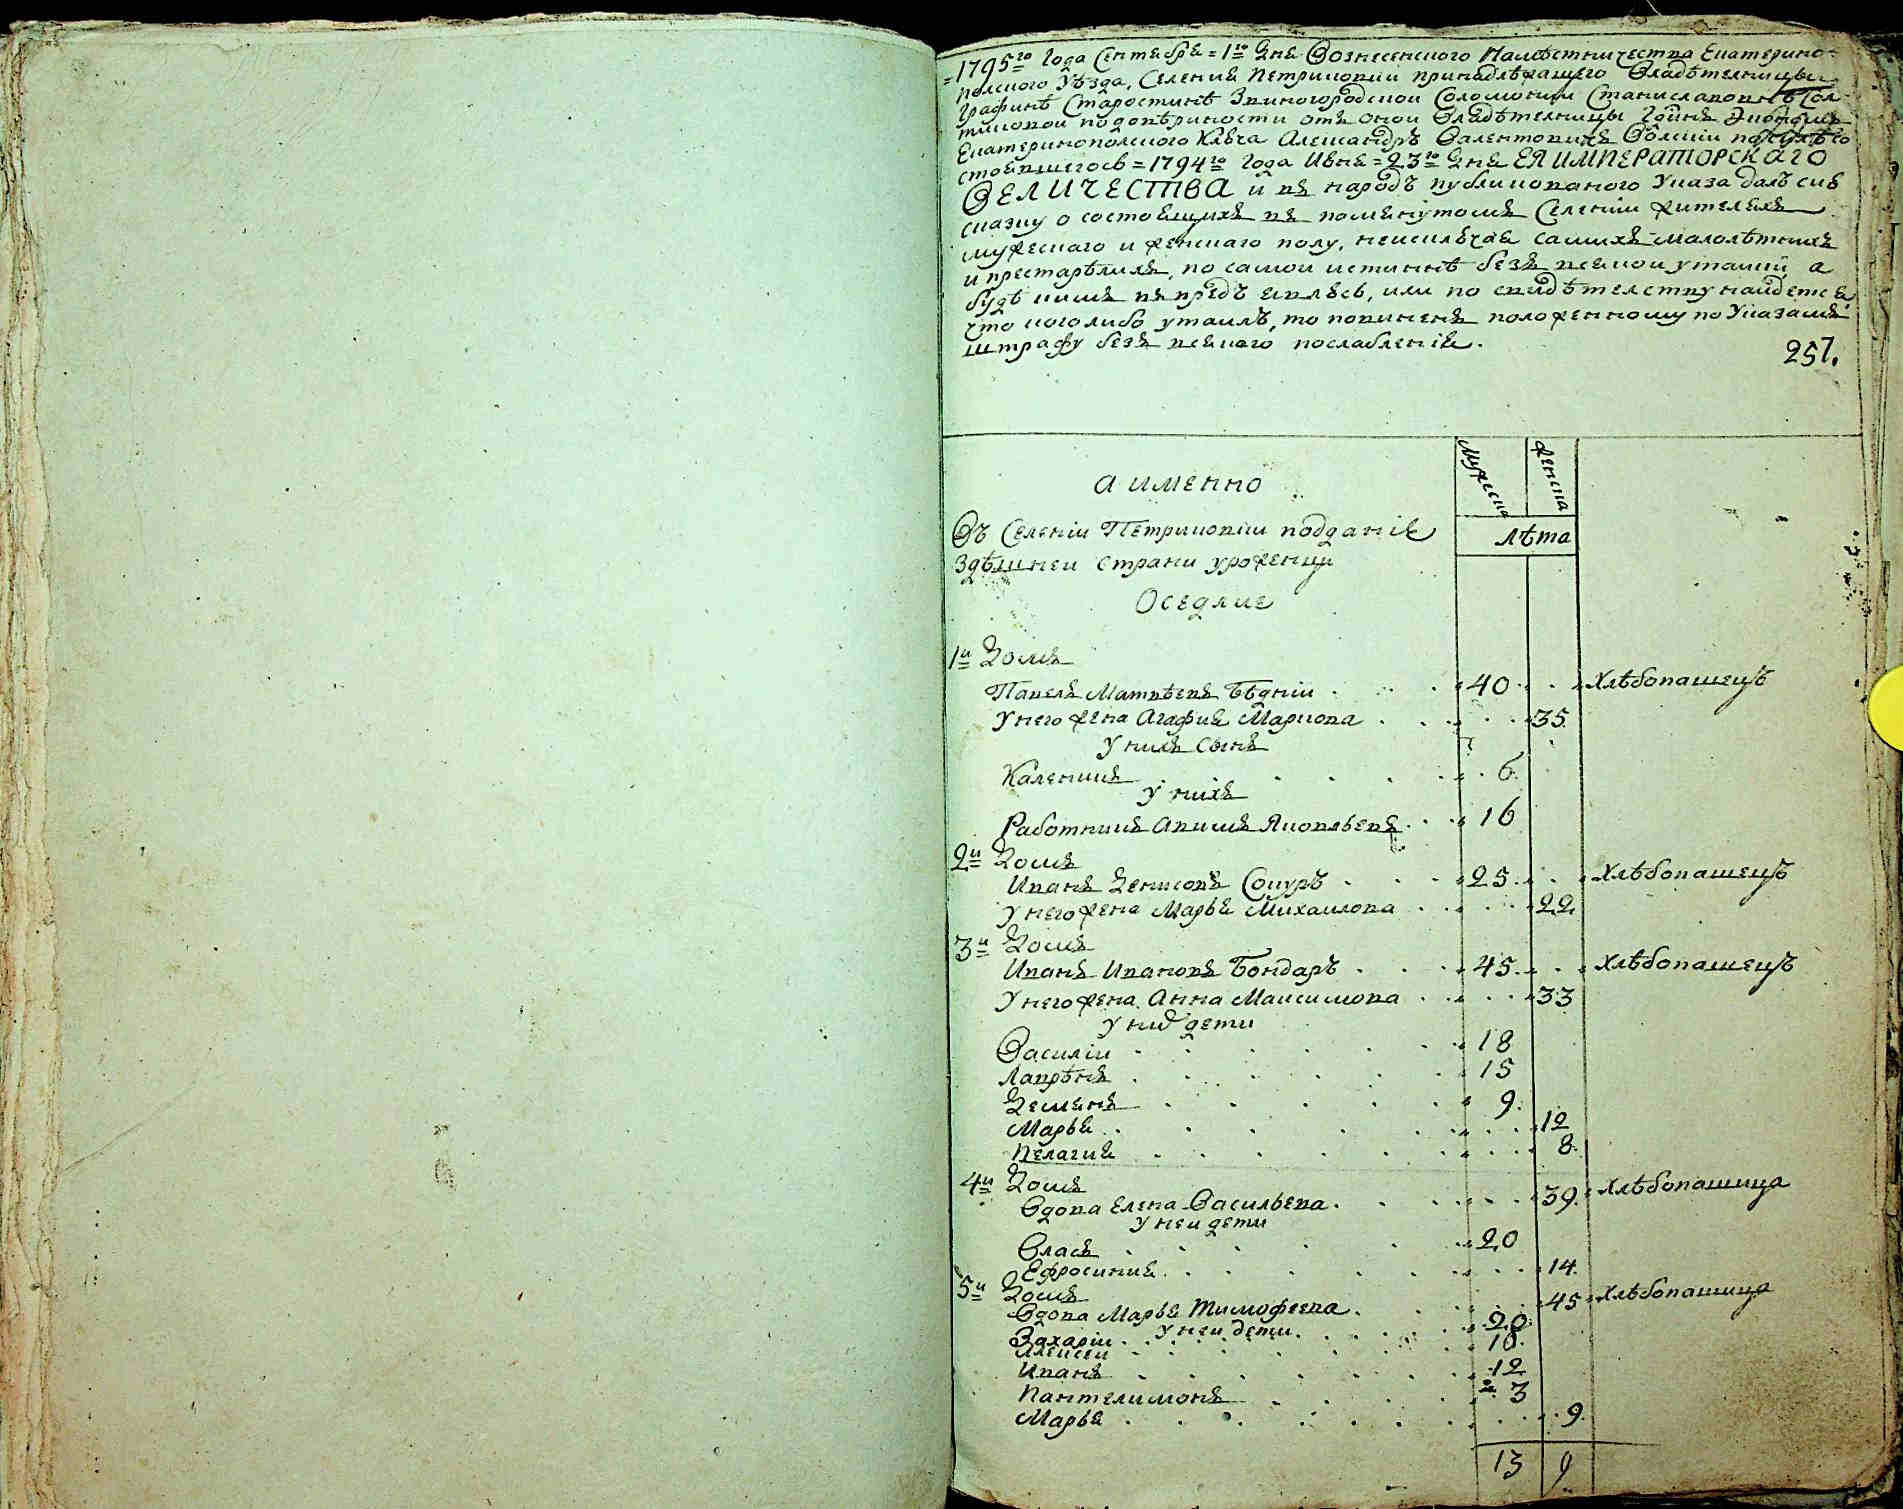 =1795го года Сентября =1го дня Вознесенского Намѣстничества Екатерино=
полского Уѣзда, Селения Петриковки принадлѣжащего Владѣтелницы
Графинѣ Старостинѣ Звиногородской Соломонии Станиславовнѣ
тиковой по довѣрености отъ оной Владѣтелницы
Екатеринополского Ключа Александръ Валентовичъ по силѣ со
стоявшегося =1794го года Июня =23го дня ЕЯ ИМПЕРАТОРСКАГО
ВЕЛИЧЕСТВА и въ народъ публикованого Указа далъ сию
сказку о состоящихъ въ помянутомъ Селении жителяхъ
мужескаго и женскаго полу, неисключая самихъ малолѣтнихъ
и престарѣлихъ, по самой истиннѣ безъ всякой утайки, а
будѣ кимъ въ предъ явлюсь, или по свидѣтелству найдется,
что кого либо утаилъ, то повиненъ положенному по Указамъ
штрафу безъ всякаго послабления.
257.
а именно
Мужеска
Женска
Въ Селении Петриковки подданіе
лѣта
здѣшней страни уроженци
Оседлие
1й Домъ
Павелъ Матвѣевъ Бѣдній 40 Хлѣбопашецъ
У него жена Агафия Маркова 35
у нихъ сынъ
Каленикъ 6
у нихъ
Работникъ Акимъ Яковлевъ 16
2й Домъ
Иванъ Денисовъ Сокуръ 25 Хлѣбопашецъ
У него жена Марья Михаилова 22
3й Домъ
Иванъ Ивановъ Бондаръ 45 Хлѣбопашецъ
У него жена Анна Максимова 33
у них дети
Василій 18
Лаврѣнъ 15
Демянъ 9
Марья 12
Пелагия 8
4й Домъ
Вдова Елена Васильева 39 Хлѣбопашица
у ней дети
Власъ 20
Ефросиния 14
5й Домъ
Вдова Марья Тимофеева 45 Хлѣбопашица
у ней дети
Захарій 20
Алексей 18
Иванъ 12
Пантелимонъ 3
Марья 9
13 9